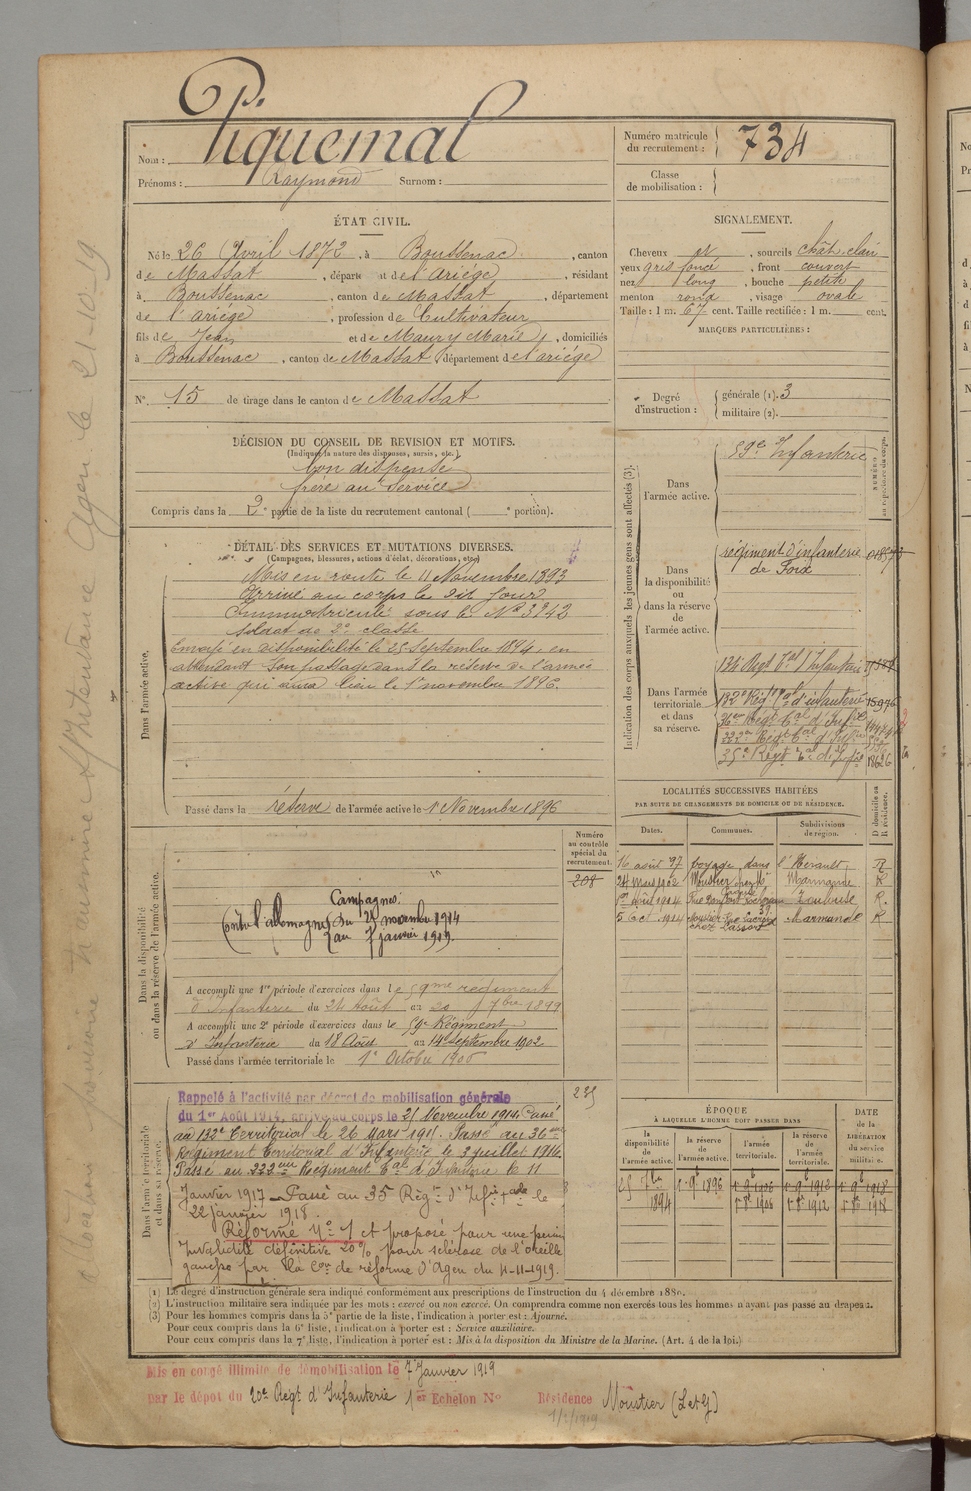 Nom : Piquemal
Prénoms : Raymond Surnom :
Numéro matricule du recrutement : 734
Classe de mobilisation :
ÉTAT CIVIL.
Né le 26 Avril 1872, à Boussenac, canton
de Massat, départemt de l'ariége, résidant
à Boussenac, canton de Massat, département
de l'ariége, profession de Cultivateur
fils de Jean et de Maury Marie, domiciliés
à Boussenac, canton de Massat, département de l'ariége
N° 15 de tirage dans le canton de Massat
SIGNALEMENT.
Cheveux et, sourcils chât. clair
yeux gris foncé, front couvert
nez long, bouche petite
menton rond, visage ovale
Taille : 1 m. 67 cent. Taille rectifiée : 1 m. cent.
MARQUES PARTICULIÈRES :
Degré d'instruction : générale (1). 3
militaire (2).
DÉCISION DU CONSEIL DE REVISION ET MOTIFS.
(Indiquer la nature des dispenses, sursis, etc.)
bon dispensé
frère au service
Compris dans la 2e partie de la liste du recrutement cantonal ( e portion).
DÉTAIL DES SERVICES ET MUTATIONS DIVERSES.
(Campagnes, blessures, actions d'éclat, décorations, etc.)
Dans l'armée active.
Mis en route le 11 Novembre 1893
Arrivé au corps le dit jour
Immatriculé sous le N° 3242
Soldat de 2e classe
Envoyé en disponibilité le 25 Septembre 1894, en
attendant son passage dans la réserve de l'armée
active qui aura lieu le 1er novembre 1896.
Passé dans la réserve de l'armée active le 1er Novembre 1896
Indication des corps auxquels les jeunes gens sont affectés (3).
NUMÉRO au répertoire du corps.
Dans l'armée active.
59e Infanterie
Dans la disponibilité ou dans la réserve de l'armée active.
régiment d'infanterie
de Foix
Dans l'armée territoriale et dans sa réserve.
134e Régt Tal d'Infanterie
132e Régt Tal d'infanterie 15976
36eme Régt Tal d'Infie
322e Régt Tal d'Infie
35e Régt Tal d'Infie 18626
LOCALITÉS SUCCESSIVES HABITÉES
PAR SUITE DE CHANGEMENTS DE DOMICILE OU DE RÉSIDENCE.
Dates. Communes. Subdivisions de région. D domicile ou R résidence.
16 août 97 voyage dans l'Hérault R
24 mars 1902 Moustier Marmande R
août 1914 Toulouse R.
5 Oct. 1914 Moustier Marmande R
chez Lassort
Dans la disponibilité ou dans la réserve de l'armée active.
Numéro au contrôle spécial du recrutement.
208
Campagnes:
Contre l'allemagne du 21 novembre 1914
au 7 janvier 1919.
A accompli une 1re période d'exercices dans le 59me régiment
d'Infanterie du 24 Août au 20 7bre 1899
A accompli une 2e période d'exercices dans le 59e Régiment
d'Infanterie du 18 Août au 14 septembre 1902
Passé dans l'armée territoriale le 1er Octobre 1906
Dans l'armée territoriale et dans sa réserve.
235
Rappelé à l'activité par décret de mobilisation générale
du 1er Août 1914, arrivé au corps le 21 Novembre 1914. Passé
au 132e territorial le 26 Mars 1915. Passé au 36eme
Régiment territorial d'Infanterie le 3 juillet 1916
Passé au 322eme Régiment Tal d'Infanterie le 11
Janvier 1917 – Passé au 35 Régt d'Infie tale le
22 janvier 1918.
Réformé N° 1 et proposé pour une pension
Invalidité définitive 20% pour sclérose de l'oreille
gauche par la Con de réforme d'Agen du 4-11-1919.
ÉPOQUE
À LAQUELLE L'HOMME DOIT PASSER DANS
la disponibilité de l'armée active. la réserve de l'armée active. l'armée territoriale. la réserve de l'armée territoriale. DATE de la LIBÉRATION du service militaire.
25 7bre 1894 1er 9bre 1896 1er 9bre 1906 1er 9bre 1912 1er 9bre 1918
1er 8bre 1906 1er 8bre 1912 1er 8bre 1918
(1) Le degré d'instruction générale sera indiqué conformément aux prescriptions de l'instruction du 4 décembre 1889.
(2) L'instruction militaire sera indiquée par les mots : exercé ou non exercé. On comprendra comme non exercés tous les hommes n'ayant pas passé au drapeau.
(3) Pour les hommes compris dans la 5e partie de la liste, l'indication à porter est : Ajourné.
Pour ceux compris dans la 6e liste, l'indication à porter est : Service auxiliaire.
Pour ceux compris dans la 7e liste, l'indication à porter est : Mis à la disposition du Ministre de la Marine. (Art. 4 de la loi.)
Mis en congé illimité de démobilisation le 7 Janvier 1919
par le dépôt du 20e Régt d'Infanterie 1er Echelon N° Résidence Moustier (L et G)
1/2/1919
provisoire Intendance Agen le 21-10-19